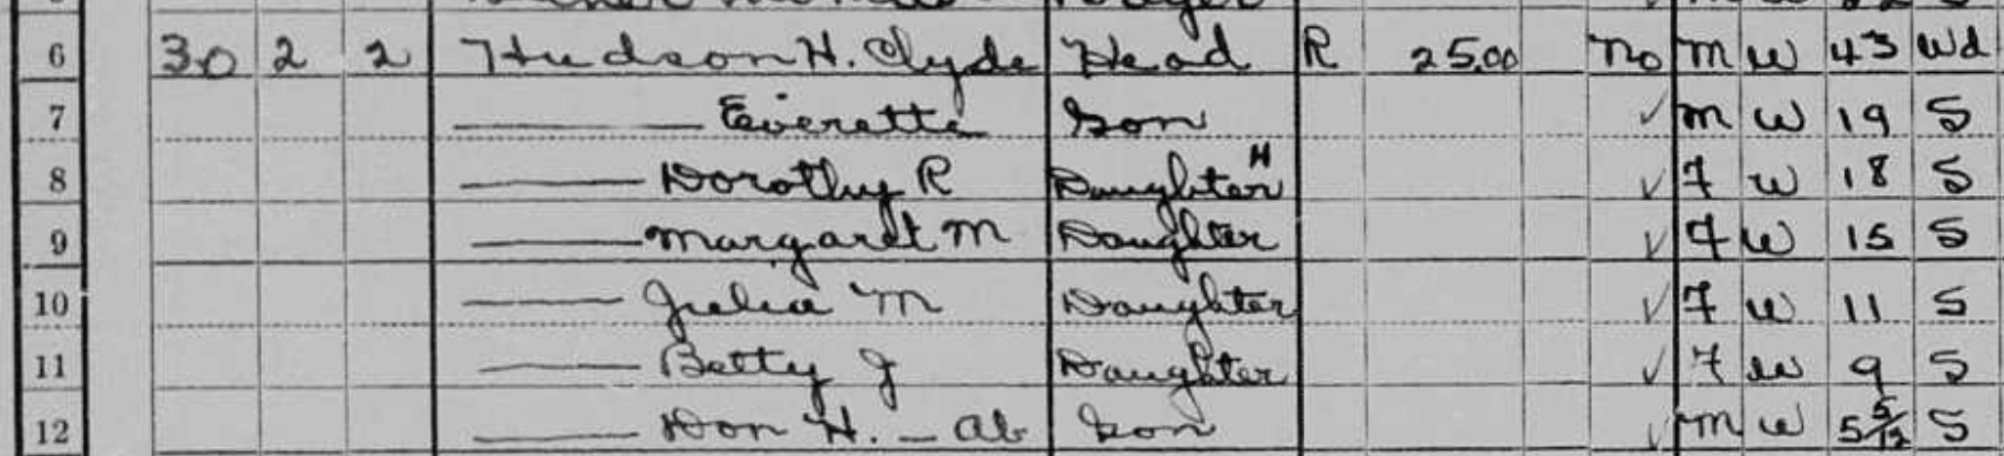 6 30 2 2 Hudson H. Clyde Head R 25.00 no M W 43 Wd
7 —— Everette Son ✓ M W 19 S
8 —— Dorothy R Daughter H ✓ F W 18 S
9 —— Margaret M Daughter ✓ F W 15 S
10 —— Julia M Daughter ✓ F W 11 S
11 —— Betty J Daughter ✓ F W 9 S
12 —— Don H. — Ab Son ✓ M W 5 5/12 S